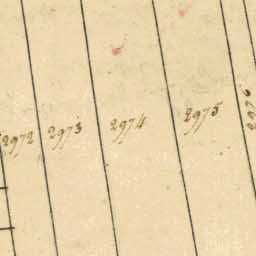 2972
2973
2974
2975